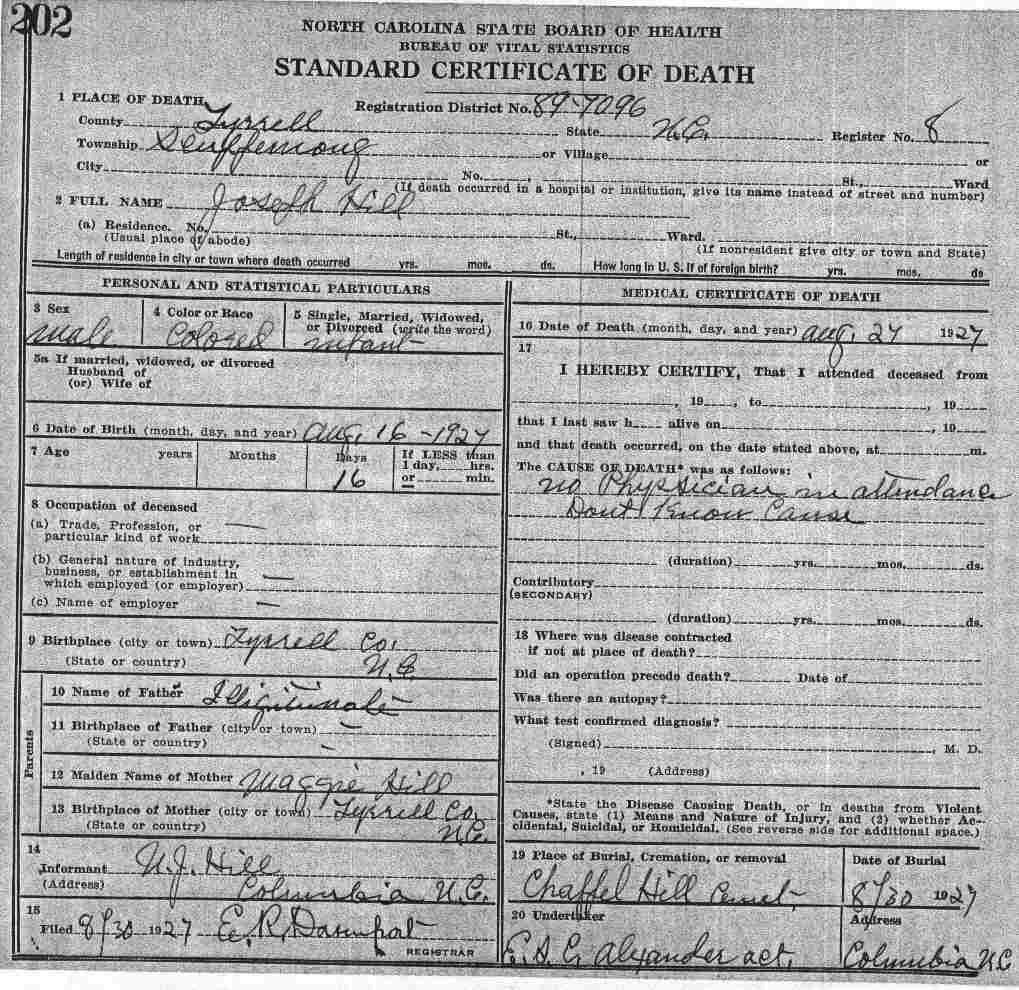 202
NORTH CAROLINA STATE BOARD OF HEALTH
BUREAU OF VITAL STATISTICS
STANDARD CERTIFICATE OF DEATH
1 PLACE OF DEATH Registration District No. 89-7096
County Tyrrell State N.C. Register No. 8
Township Scuppernong or Village or
City No. St., Ward
(If death occurred in a hospital or institution, give its name instead of street and number)
2 FULL NAME Joseph Hill
(a) Residence. No. St., Ward.
(Usual place of abode) (If nonresident give city or town and State)
Length of residence in city or town where death occurred yrs. mos. ds. How long in U. S. if of foreign birth? yrs. mos. ds
PERSONAL AND STATISTICAL PARTICULARS
3 Sex 4 Color or Race 5 Single, Married, Widowed,
or Divorced (write the word)
male Colored infant
5a If married, widowed, or divorced
Husband of
(or) Wife of
6 Date of Birth (month, day, and year) Aug. 16-1927
7 Age years Months Days If LESS than
1 day, hrs.
16 or min.
8 Occupation of deceased
(a) Trade, Profession, or —
particular kind of work
(b) General nature of industry,
business, or establishment in —
which employed (or employer)
(c) Name of employer —
9 Birthplace (city or town) Tyrrell Co.
(State or country) N.C.
Parents
10 Name of Father Illigitimate
11 Birthplace of Father (city or town) —
(State or country) -
12 Maiden Name of Mother Maggie Hill
13 Birthplace of Mother (city or town) Tyrrell Co.
(State or country) N.C.
14
Informant Hill
(Address) Columbia N.C.
15
Filed 8/30 1927 E. R. Davenport
REGISTRAR
MEDICAL CERTIFICATE OF DEATH
16 Date of Death (month, day, and year) Aug. 27 1927
17
I HEREBY CERTIFY, That I attended deceased from
, 19 , to , 19
that I last saw h alive on , 19
and that death occurred, on the date stated above, at m.
The CAUSE OF DEATH* was as follows:
no Physician in attendance
Dont Know Cause
(duration) yrs. mos. ds.
Contributory
(SECONDARY)
(duration) yrs. mos. ds.
18 Where was disease contracted
if not at place of death?
Did an operation precede death? Date of
Was there an autopsy?
What test confirmed diagnosis?
(Signed) , M. D.
, 19 (Address)
*State the Disease Causing Death, or in deaths from Violent
Causes, state (1) Means and Nature of Injury, and (2) whether Ac-
cidental, Suicidal, or Homicidal. (See reverse side for additional space.)
19 Place of Burial, Cremation, or removal Date of Burial
Chappel Hill Cemt. 8/30 1927
20 Undertaker Address
Alexander act. Columbia N.C